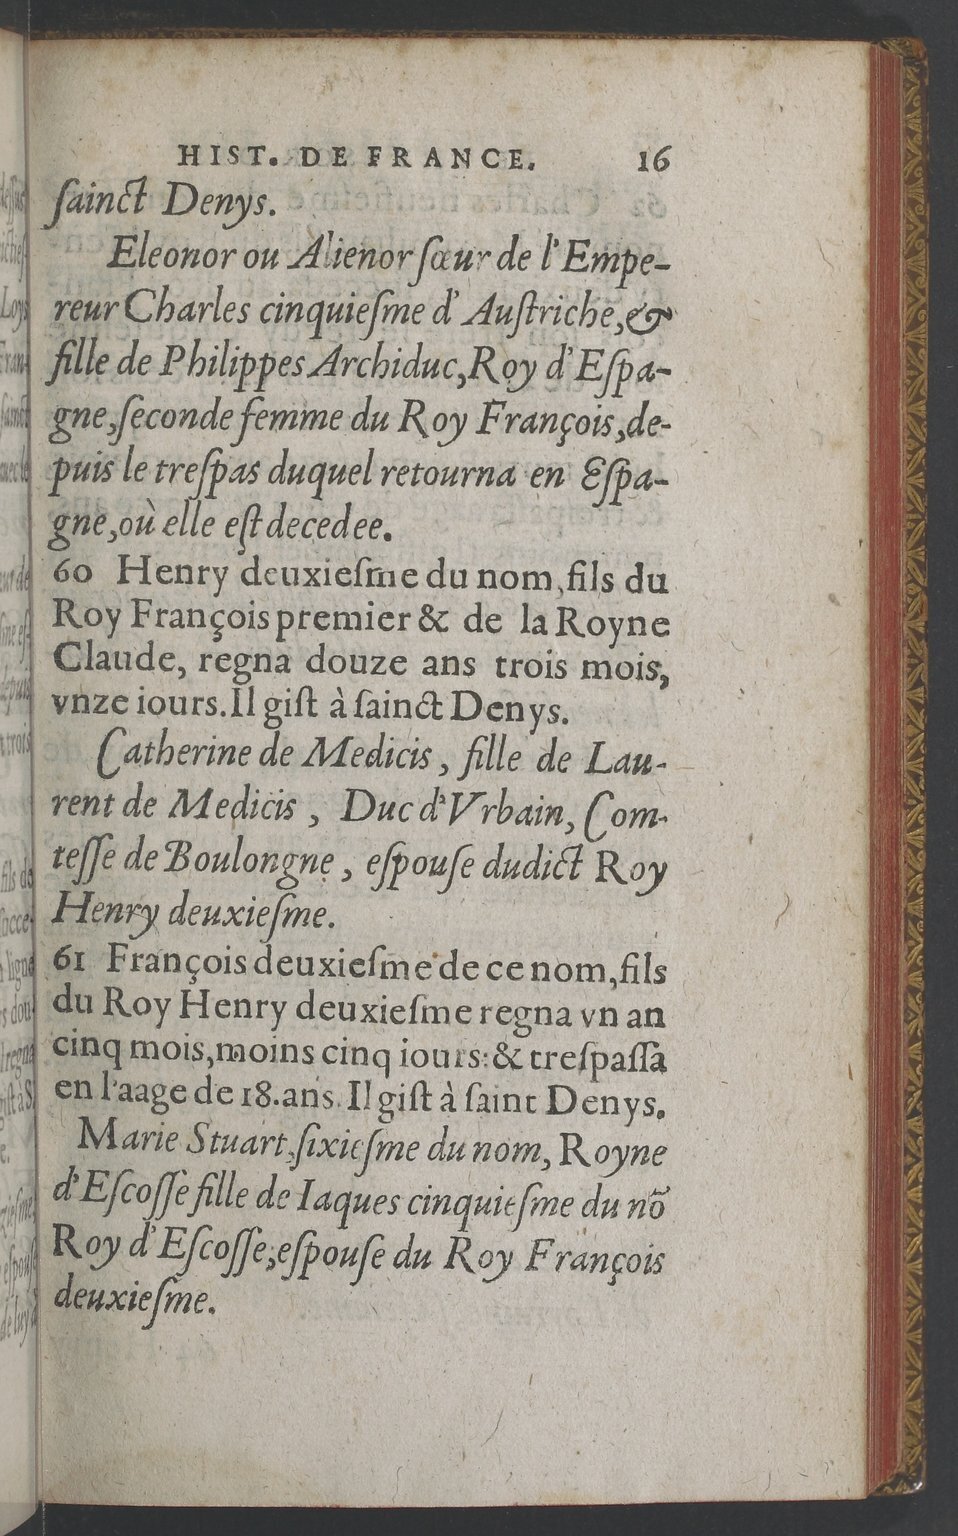 HIST. DE FRANCE. 16
ſainct Denys.
Eleonor ou Alienor ſœur de l'Empe-
reur Charles cinquieſme d'Auſtriche, &
fille de Philippes Archiduc, Roy d'Eſpa-
gne, ſeconde femme du Roy François, de-
puis le treſpas duquel retourna en Eſpa-
gne, où elle eſt decedee.
60 Henry deuxieſme du nom, fils du
Roy François premier & de la Royne
Claude, regna douze ans trois mois,
vnze iours. Il giſt à ſainct Denys.
Catherine de Medicis, fille de Lau-
rent de Medicis, Duc d'Vrbain, Com-
teſſe de Boulongne, eſpouſe dudict Roy
Henry deuxieſme.
61 François deuxieſme de ce nom, fils
du Roy Henry deuxieſme regna vn an
cinq mois, moins cinq iours: & treſpaſſa
en l'aage de 18. ans. Il giſt à ſaint Denys.
Marie Stuart, ſixieſme du nom, Royne
d'Eſcoſſe fille de Iaques cinquieſme du nõ
Roy d'Eſcoſſe, eſpouſe du Roy François
deuxieſme.